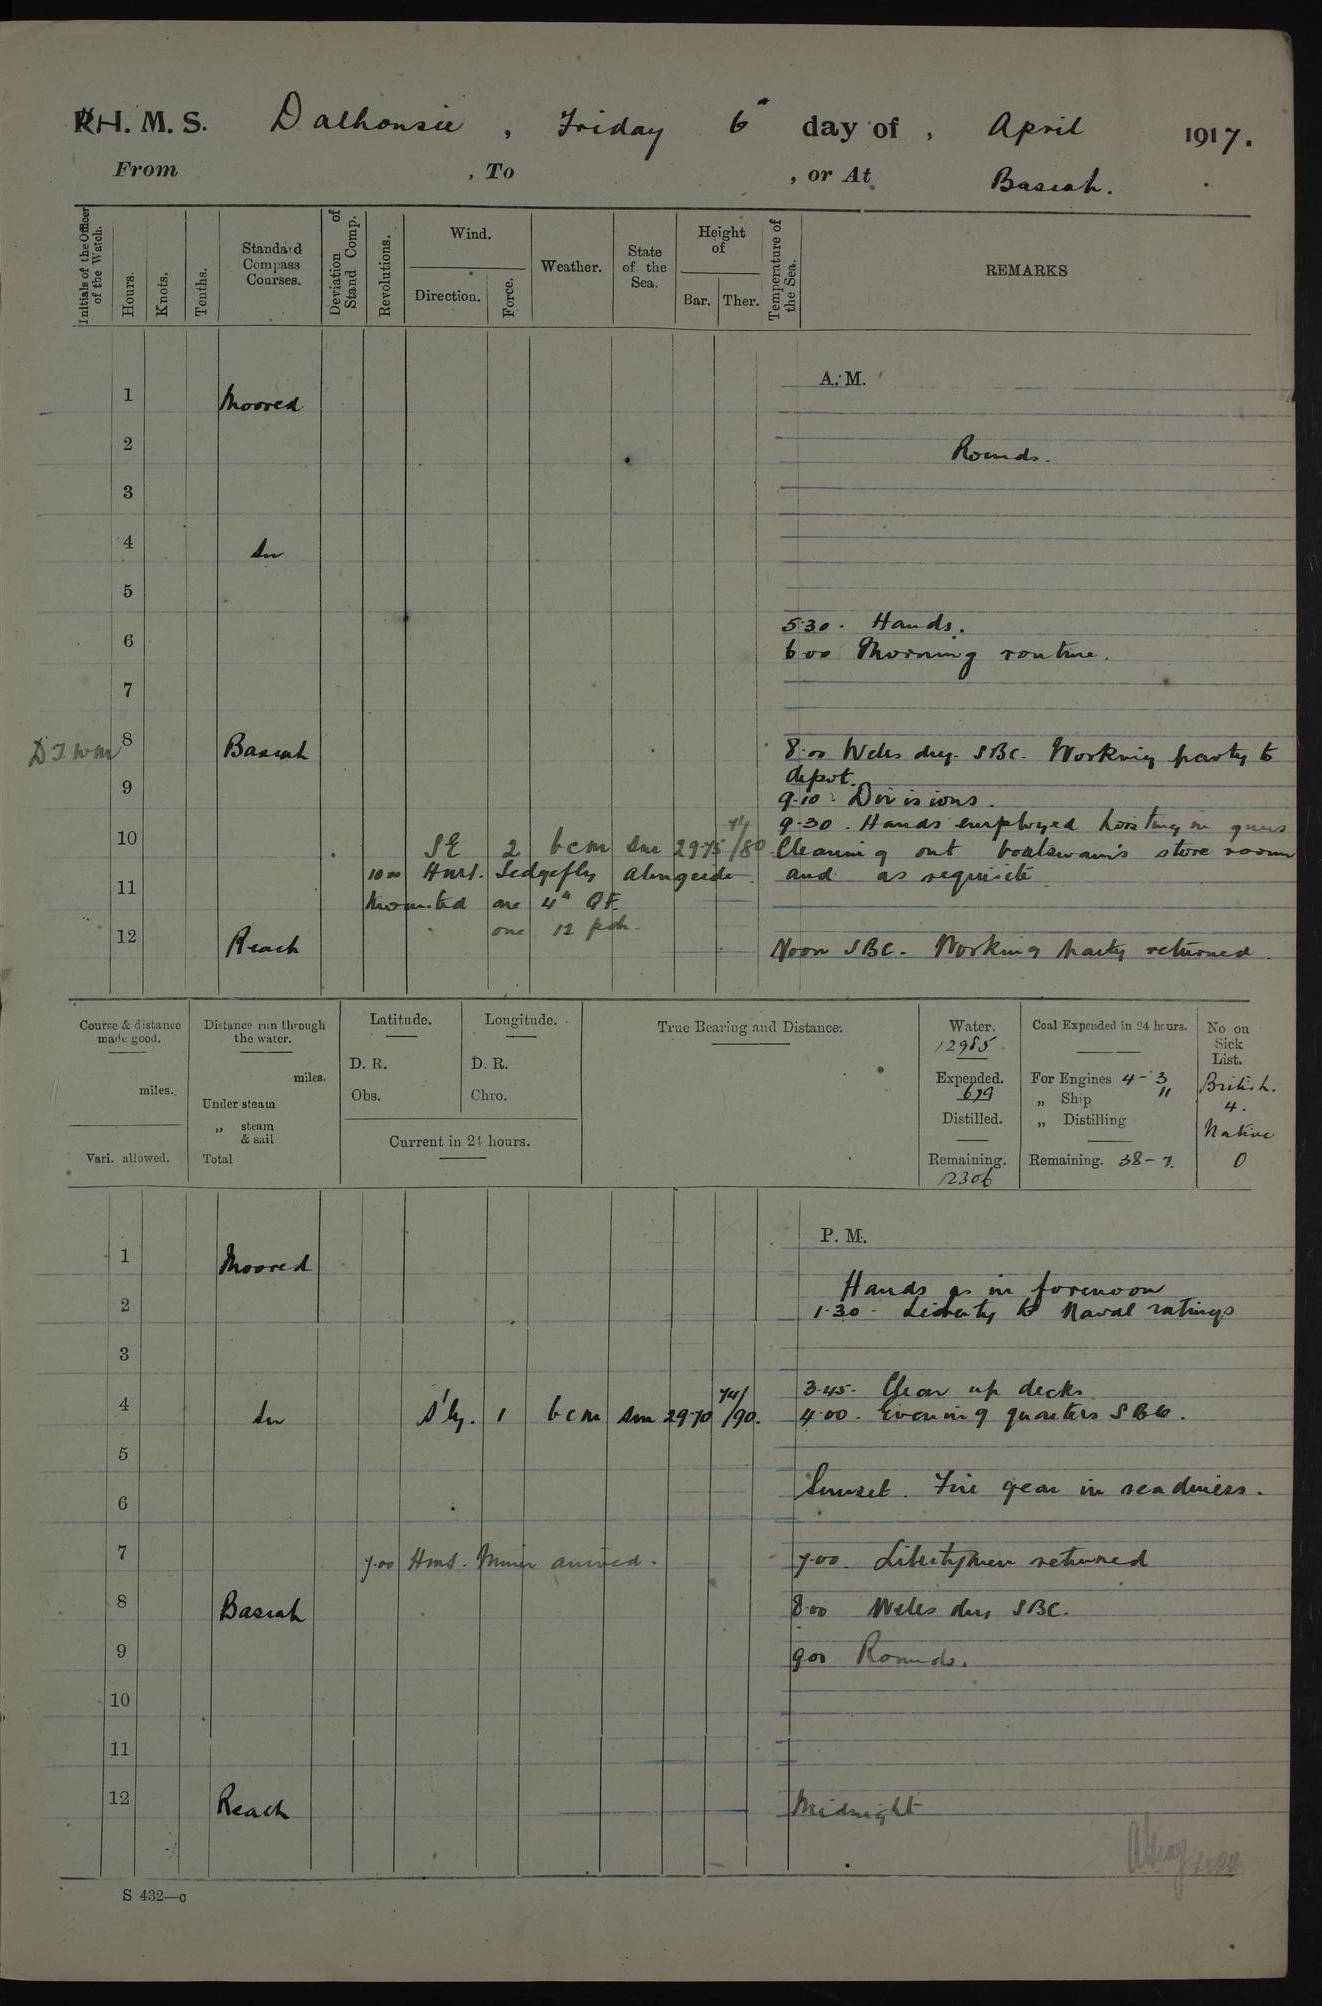 H. M. S. Dalhousie, Friday 6th day of, April 1917.
From , To , or At Basrah.
Initials of the Officer of the Watch.
Hours.
Knots.
Tenths.
Standard Compass Courses.
Deviation of Stand Comp.
Revolutions.
Wind.
Direction.
Force.
Weather.
State of the Sea.
Height of
Bar.
Ther.
Temperature of the Sea.
REMARKS
A. M.
1 Moored
2 Rounds.
3
4 In
5
5.30. Hands.
6
6.00 Morning routine.
7
8 Basrah 8.00 Wells dry. SBC. Working party to
depot.
9
9.10. Divisions.
9.30. Hands employed hoisting in guns
10 SE 2 bcm sm 29.75 74/80 Cleaning out boatswain's store room
10.00 H.M.S. Sedgefly alongside and as requisite
11
Mounted one 4" QF.
one 12 pdr.
12 Reach Noon SBC. Working party returned.
Course & distance made good.
miles.
Vari. allowed.
Distance run through the water.
miles.
Under steam
„ steam & sail
Total
Latitude.
D. R.
Obs.
Longitude.
D. R.
Chro.
Current in 24 hours.
True Bearing and Distance.
Water.
12985
Expended.
679
Distilled.
Remaining.
12306
Coal Expended in 24 hours.
For Engines 4-3
„ Ship "
„ Distilling
Remaining. 38-7.
No on Sick List.
British.
4.
Native
0
P. M.
1 Moored
Hands as in forenoon
2 1.30. Liberty to Naval ratings
3
3.45. Clear up decks
4 In S'ly. 1 bcm sm 29.70 74/90. 4.00. Evening quarters SBC.
5
Sunset. Fire gear in readiness.
6
7 7.00 H.M.S. Miner arrived. 7.00. Libertymen returned
8 Basrah 8.00 Wells dry SBC.
9 9.00 Rounds.
10
11
12 Reach Midnight
S 432—c